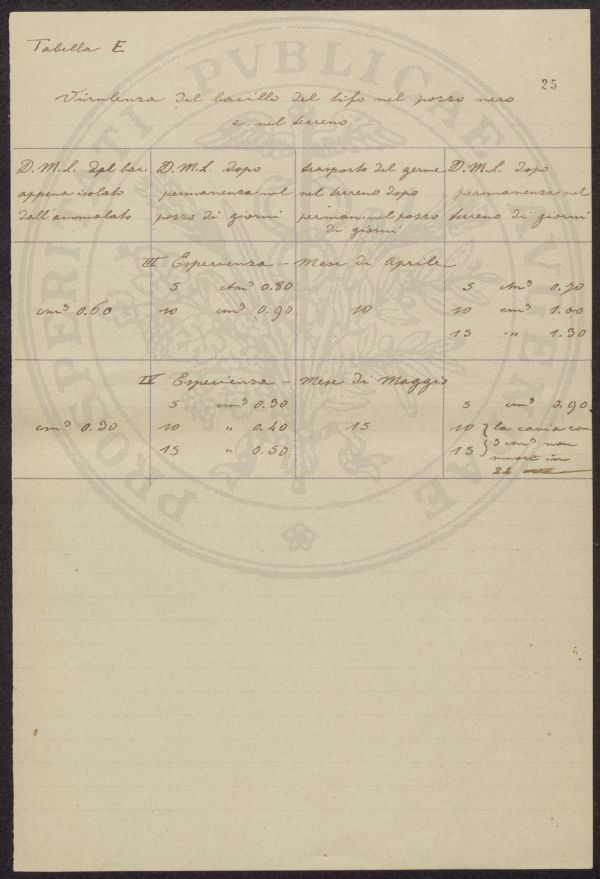 Tabella E
25
Virulenza del bacillo del tifo nel pozzo nero
e nel terreno
D.M.L. del bac.
appena isolato
dall'ammalato
D.M.L. dopo
permanenza nel
pozzo di giorni
trasporto del germe
nel terreno dopo
perman. nel pozzo
di giorni
D.M.L. dopo
permanenza nel
terreno di giorni
III Esperienza – Mese di Aprile
cm³ 0.60
5 cm³ 0.80
10 cm³ 0.90
10
5 cm³
10 cm³ 1.00
15 " 1.30
IV Esperienza – Mese di Maggio
cm³ 0.30
5 cm³ 0.30
10 " 0.40
15 " 0.50
15
5 cm³ 0.90
10 } la cavia con
15 } 3 cm³ non
muore in
PROSPERITATI PVBLICAE